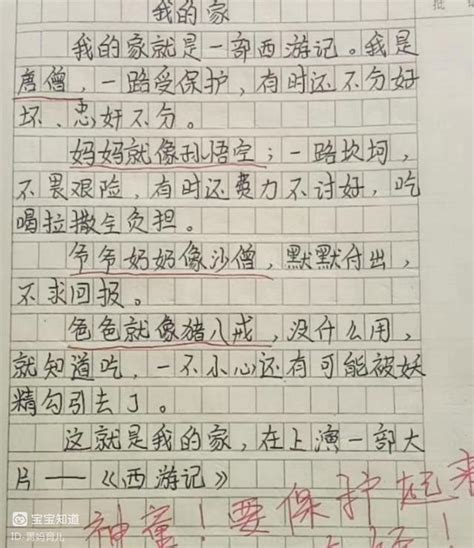 我的家
批
我的家就是一部西游记。我是
唐僧，一路受保护，有时还不分好
坏、忠奸不分。
妈妈就像孙悟空；一路坎坷，
不畏艰险，有时还费力不讨好，吃
喝拉撒全负担。
爷爷奶奶像沙僧，默默付出，
不求回报。
爸爸就像猪八戒，没什么用，
就知道吃，一不小心还有可能被妖
精勾引去了。
这就是我的家，在上演一部大
片——《西游记》
神童！要保护起来
宝宝知道
ID:萧妈育儿